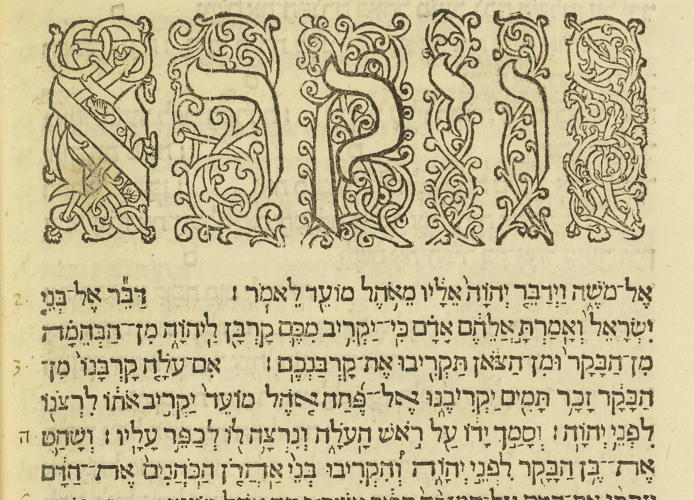 ויקרא
אֶל־מֹשֶׁה וַיְדַבֵּר יְהוָה אֵלָיו מֵאֹהֶל מוֹעֵד לֵאמֹר׃ דַּבֵּר אֶל־בְּנֵי 2
יִשְׂרָאֵל וְאָמַרְתָּ אֲלֵהֶם אָדָם כִּי־יַקְרִיב מִכֶּם קָרְבָּן לַיהוָה מִן־הַבְּהֵמָה
מִן־הַבָּקָר וּמִן־הַצֹּאן תַּקְרִיבוּ אֶת־קָרְבַּנְכֶם׃ אִם־עֹלָה קָרְבָּנוֹ מִן־ 3
הַבָּקָר זָכָר תָּמִים יַקְרִיבֶנּוּ אֶל־פֶּתַח אֹהֶל מוֹעֵד יַקְרִיב אֹתוֹ לִרְצֹנוֹ
לִפְנֵי יְהוָה׃ וְסָמַךְ יָדוֹ עַל רֹאשׁ הָעֹלָה וְנִרְצָה לוֹ לְכַפֵּר עָלָיו׃ וְשָׁחַט ה
אֶת־בֶּן הַבָּקָר לִפְנֵי יְהוָה וְהִקְרִיבוּ בְּנֵי אַהֲרֹן הַכֹּהֲנִים אֶת־הַדָּם